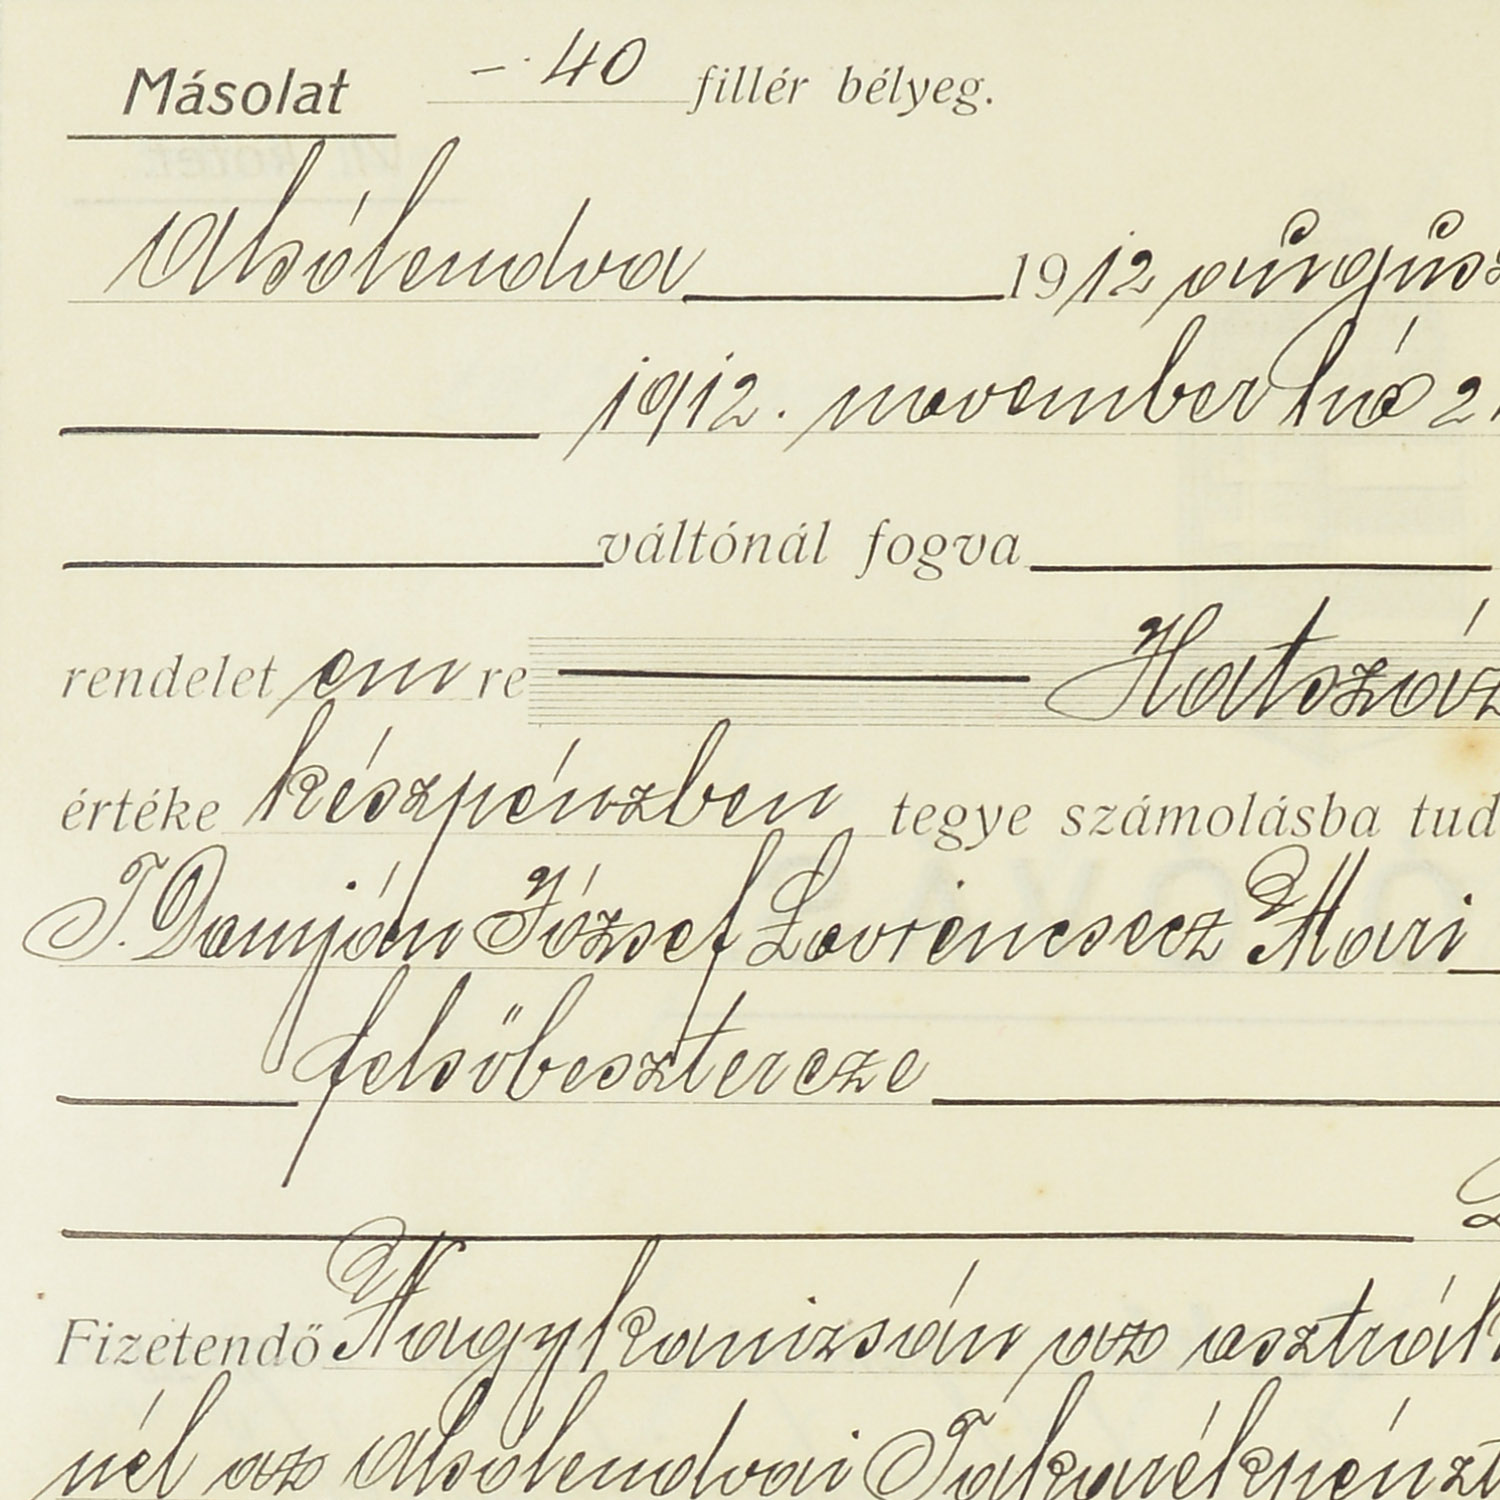 Másolat – 40 fillér bélyeg.
Alsólendva 1912 augusz
1912. november hó 2
váltónál fogva
rendelet em re Hatszáz
értéke készpénzben tegye számolásba tud
T. Damján József Lovrencsecz Mari
felsőbeszterecze
Fizetendő Nagykanizsán az osztrák
nél az Alsólendvai Takarékpénzt